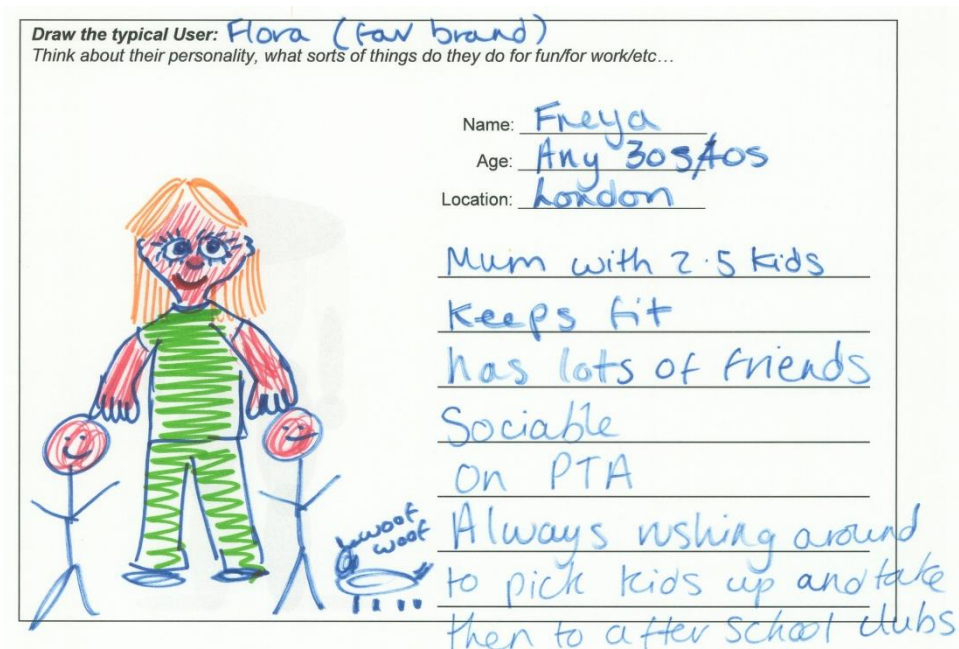 Draw the typical User: Flora (fav brand)
Think about their personality, what sorts of things do they do for fun/for work/etc…
Name: Freya
Age: Any 30s/40s
Location: London
Mum with 2.5 kids
Keeps fit
has lots of friends
Sociable
on PTA
Always rushing around
to pick kids up and take
then to after school clubs
woof
woof